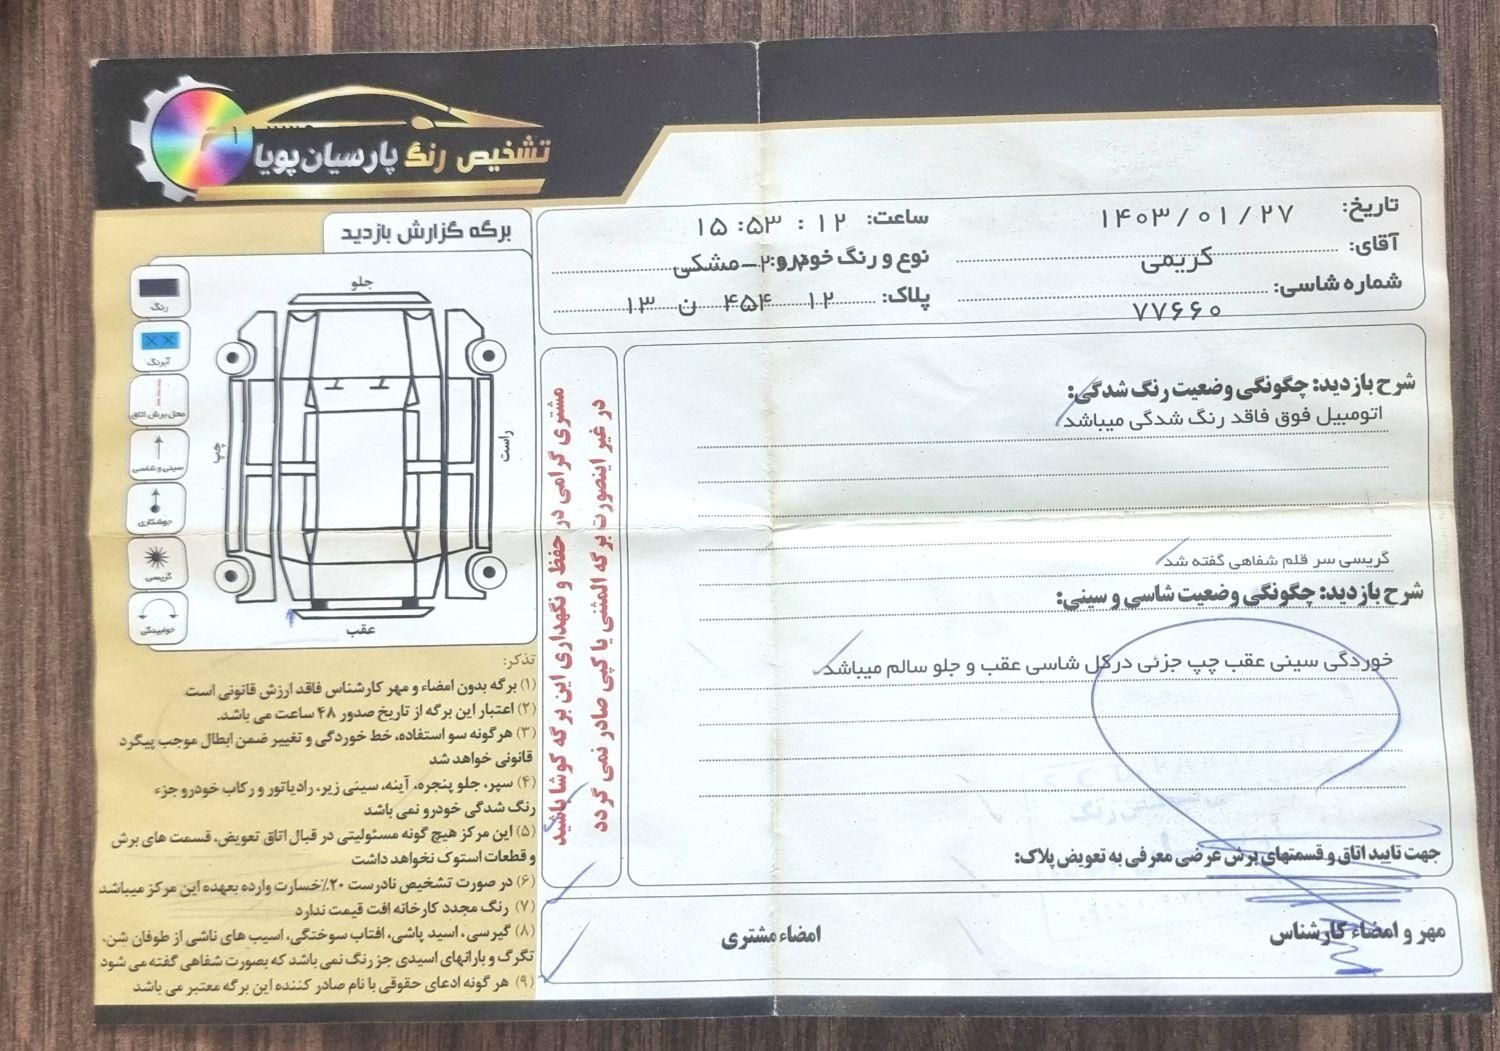 تشخیص رنگ پارسیان پویا
برگه گزارش بازدید
تاریخ: ۱۴۰۳/۰۱/۲۷
ساعت: ۱۲ : ۱۵:۵۳
آقای: کریمی
نوع و رنگ خودرو: مشکی
شماره شاسی: ۷۷۶۶۰
پلاک: ۱۲ ۴۵۴ ن ۱۳
رنگ
آبرنگ
محل برش اتاق
سینی و شاسی
جوشکاری
گریسی
خوابیدگی
جلو
چپ
راست
عقب
مشتری گرامی در حفظ و نگهداری این برگه کوشا باشید
در غیر اینصورت برگه المثنی یا کپی صادر نمی گردد
شرح بازدید: چگونگی وضعیت رنگ شدگی:
اتومبیل فوق فاقد رنگ شدگی میباشد
گریسی سر قلم شفاهی گفته شد
شرح بازدید: چگونگی وضعیت شاسی و سینی:
خوردگی سینی عقب چپ جزئی درکل شاسی عقب و جلو سالم میباشد
جهت تایید اتاق و قسمتهای برش عرضی معرفی به تعویض پلاک:
مهر و امضاء کارشناس
امضاء مشتری
تذکر:
۱) برگه بدون امضاء و مهر کارشناس فاقد ارزش قانونی است
۲) اعتبار این برگه از تاریخ صدور ۴۸ ساعت می باشد.
۳) هرگونه سو استفاده، خط خوردگی و تغییر ضمن ابطال موجب پیگرد
قانونی خواهد شد
۴) سپر، جلو پنجره، آینه، سینی زیر، رادیاتور و رکاب خودرو جزء
رنگ شدگی خودرو نمی باشد
۵) این مرکز هیچ گونه مسئولیتی در قبال اتاق تعویض، قسمت های برش
و قطعات استوک نخواهد داشت
۶) در صورت تشخیص نادرست ۲۰٪ خسارت وارده بعهده این مرکز میباشد
۷) رنگ مجدد کارخانه افت قیمت ندارد
۸) گیرسی، اسید پاشی، افتاب سوختگی، اسیب های ناشی از طوفان شن،
تگرگ و بارانهای اسیدی جز رنگ نمی باشد که بصورت شفاهی گفته می شود
۹) هر گونه ادعای حقوقی با نام صادر کننده این برگه معتبر می باشد